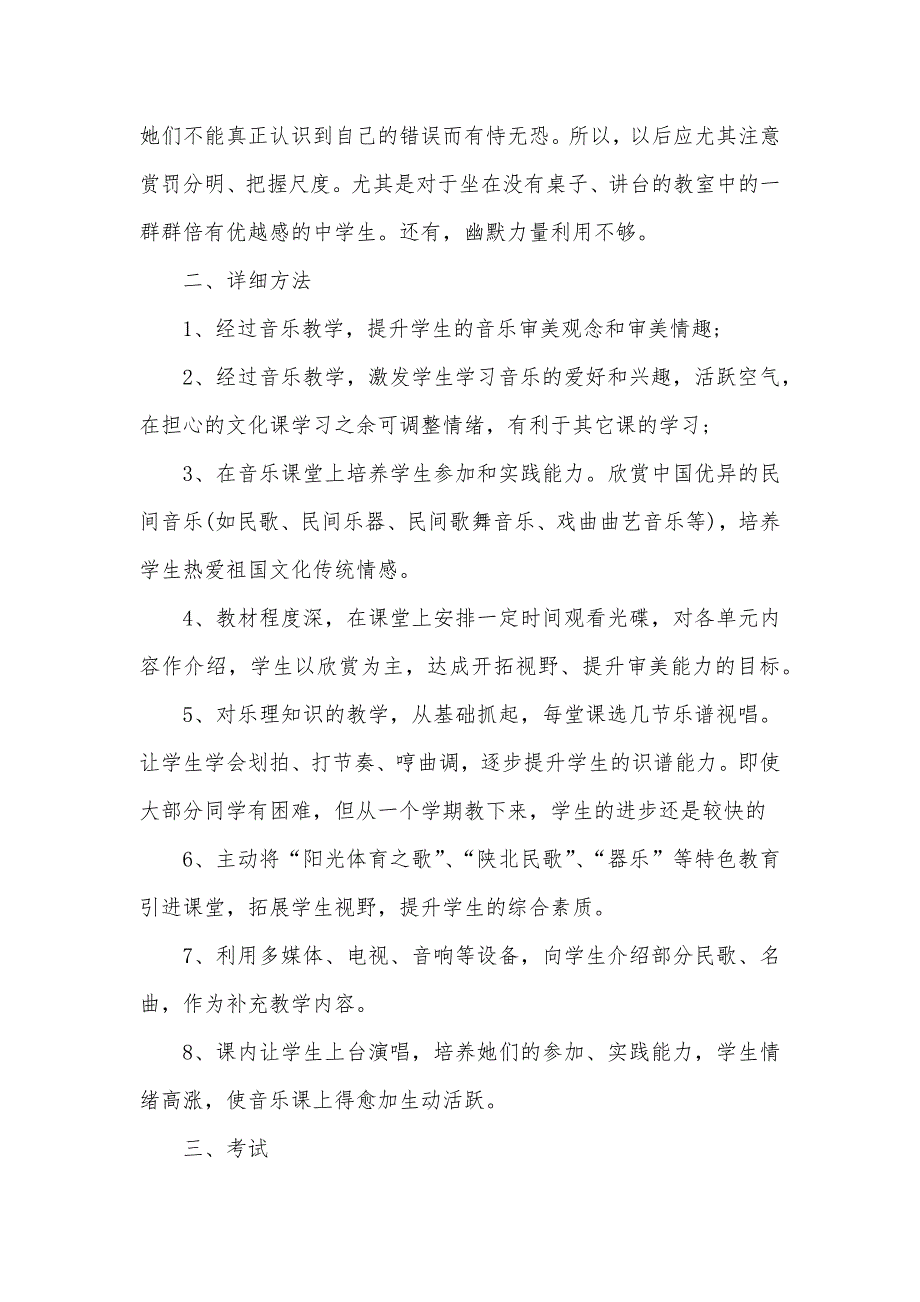 她们不能真正认识到自己的错误而有恃无恐。所以，以后应尤其注意
赏罚分明、把握尺度。尤其是对于坐在没有桌子、讲台的教室中的一
群群倍有优越感的中学生。还有，幽默力量利用不够。
二、详细方法
1、经过音乐教学，提升学生的音乐审美观念和审美情趣;
2、经过音乐教学，激发学生学习音乐的爱好和兴趣，活跃空气，
在担心的文化课学习之余可调整情绪，有利于其它课的学习;
3、在音乐课堂上培养学生参加和实践能力。欣赏中国优异的民
间音乐(如民歌、民间乐器、民间歌舞音乐、戏曲曲艺音乐等)，培养
学生热爱祖国文化传统情感。
4、教材程度深，在课堂上安排一定时间观看光碟，对各单元内
容作介绍，学生以欣赏为主，达成开拓视野、提升审美能力的目标。
5、对乐理知识的教学，从基础抓起，每堂课选几节乐谱视唱。
让学生学会划拍、打节奏、哼曲调，逐步提升学生的识谱能力。即使
大部分同学有困难，但从一个学期教下来，学生的进步还是较快的
6、主动将“阳光体育之歌”、“陕北民歌”、“器乐”等特色教育
引进课堂，拓展学生视野，提升学生的综合素质。
7、利用多媒体、电视、音响等设备，向学生介绍部分民歌、名
曲，作为补充教学内容。
8、课内让学生上台演唱，培养她们的参加、实践能力，学生情
绪高涨，使音乐课上得愈加生动活跃。
三、考试